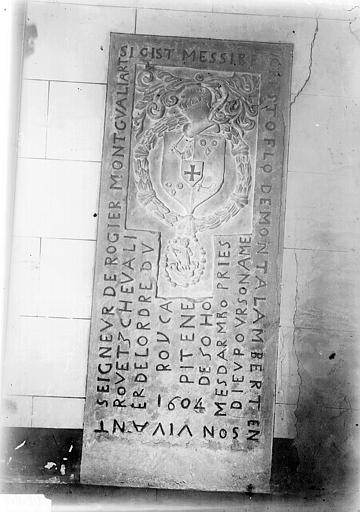 SI GIST MESSIRE
CRISTOFLO DE MONTALAMBERT EN
SON VIVANT
SEIGNEVR DE ROGIER MONTGVALIART
ROVETS CHEVALI
ER DE LORDRE DV
ROV CA
PITENE
DE SOHO
MESDARMBO PRIES
DIEV POVR SON AME
1604